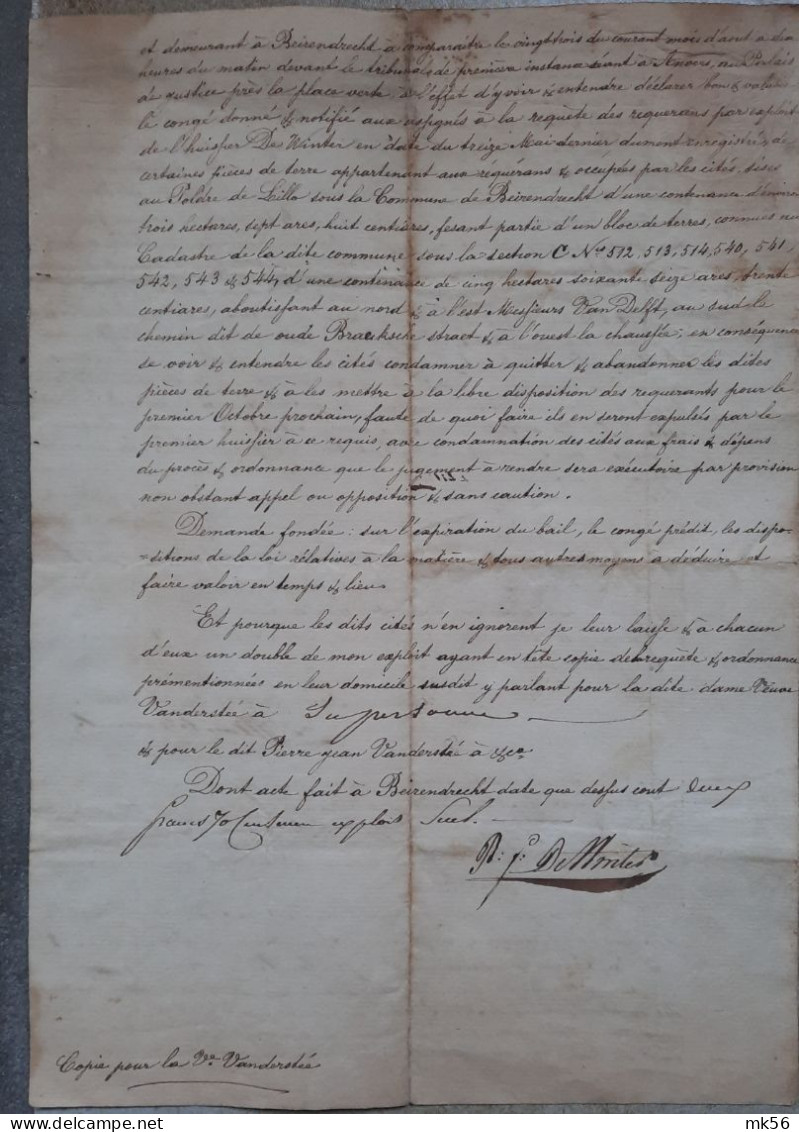 et demeurant à Beirendrecht à comparaitre le vingttrois du courant mois d'aout à dix
heures du matin devant le tribunal de première instance séant à Anvers, au Palais
de justice près la place verte à l'effet d'y voir & entendre déclarer bon & valable
le congé donné & notifié aux assignés à la requête des requerans par exploit
de l'huissier De Winter en date du treize Mai dernier dument enregistré, de
certaines pièces de terre appartenant aux réquérans & occupées par les cités, sises
au Poldre de Lillo sous la Commune de Beirendrecht d'une contenance d'environ
trois hectares, sept ares, huit centiares, fesant partie d'un bloc de terres, connues au
Cadastre de la dite commune sous la section C Nos 512, 513, 514, 540, 541,
542, 543 & 544, d'une contenance de cinq hectares soixante seize ares, trente
centiares, aboutissant au nord & à l'est Messieurs Van Delft, au sud le
chemin dit de oude Braeksche straet & à l'ouest la chaussée; en conséquence
se voir & entendre les cités condamner à quitter & abandonner les dites
pièces de terre & à les mettre à la libre disposition des requerants pour le
premier Octobre prochain, faute de quoi faire ils en seront expulsés par le
premier huissier à ce requis, avec condamnation des cités aux frais & dépens
du procès & ordonnance que le jugement à rendre sera exécutoire par provision
non obstant appel ou opposition & sans caution.
Demande fondée: sur l'expiration du bail, le congé prédit, les dispo-
=sitions de la loi rélatives à la matière & tous autres moyens à déduire et
faire valoir en temps & lieu.
Et pourque les dits cités n'en ignorent je leur laisse & à chacun
d'eux un double de mon exploit ayant en tête copie des requête & ordonnance
prémentionnées en leur domicile susdit y parlant pour la dite dame Veuve
Vanderstée à Sa personne
& pour le dit Pierre jean Vanderstée à &ca
Dont acte fait à Beirendrecht date que dessus cout deux
francs 70 Centimes exploit Seul.
P: J: DeWinter
Copie pour la Ve Vanderstée
mk56